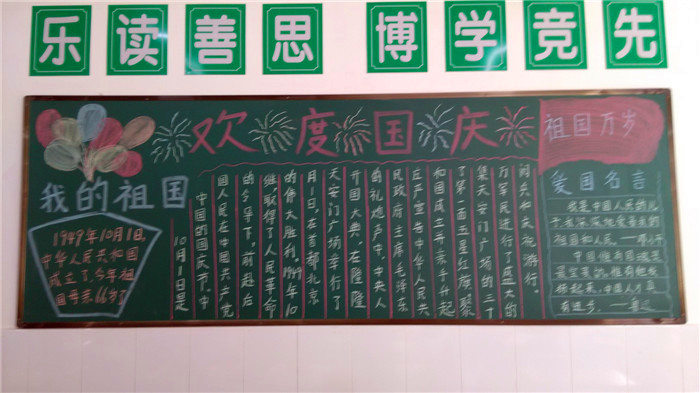 乐读善思 博学竞先
欢度国庆
祖国万岁
我的祖国
1949年10月1日,
中华人民共和国
成立了,今年祖
国母亲66岁了
10月1日是
中国的国庆节。中
国人民在中国共产党
的领导下,前赴后
继,取得了人民革命
的伟大胜利。1949年10
月1日,在首都北京
天安门广场举行了
开国大典。在隆隆
的礼炮声中,中央人
民政府主席毛泽东
庄严宣告中华人民共
和国成立并亲手升起
了第一面五星红旗聚
集天安门广场的三十
万军民进行了盛大的
阅兵和庆祝游行。
爱国名言
我是中国人民的儿
子,我深深地爱着我的
祖国和人民。——邓小平
中国惟有国魂是
最宝贵的,惟有他发
扬起来,中国人才有
有进步。——鲁迅